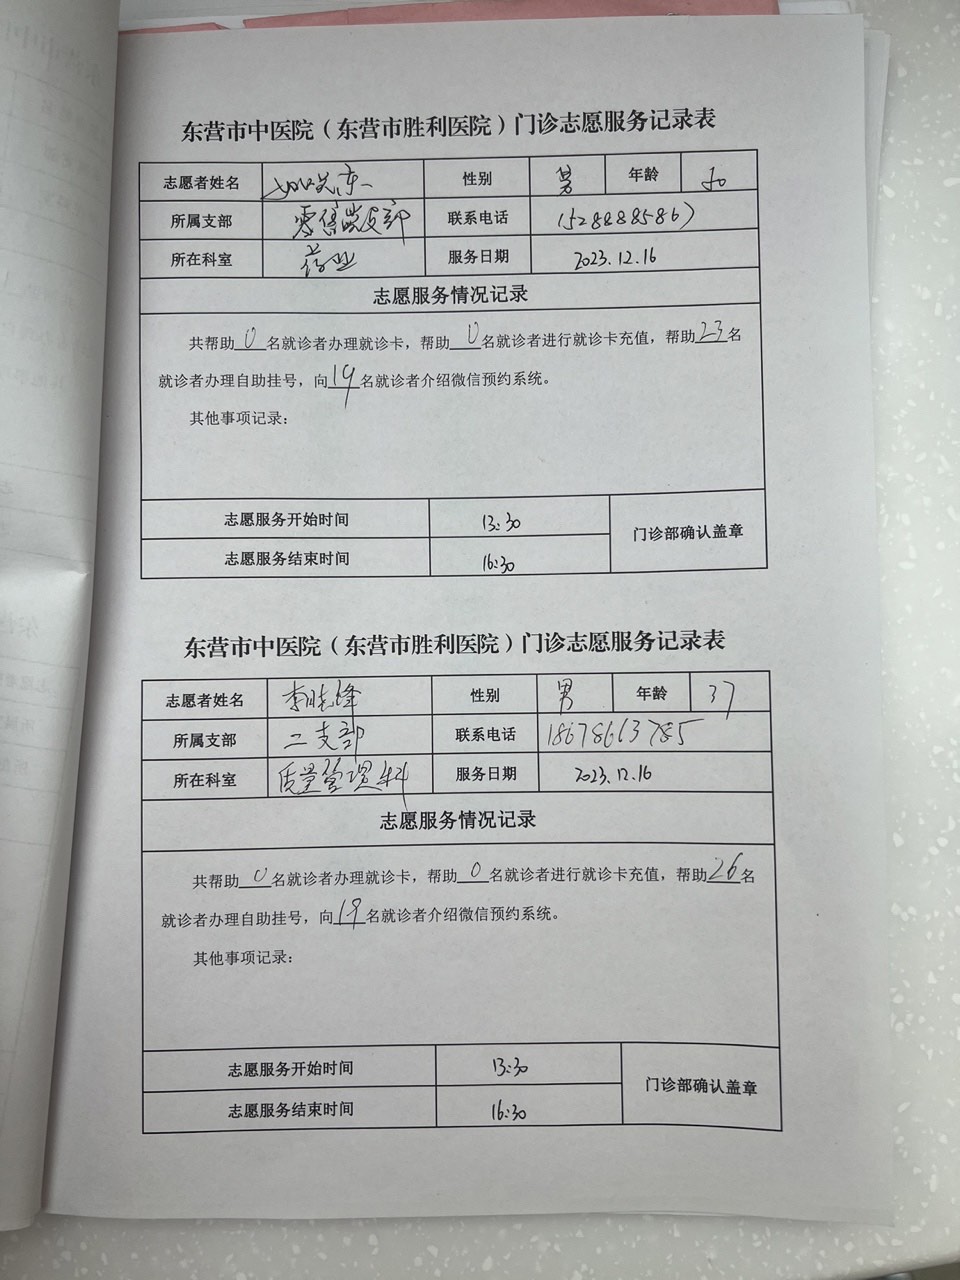 东营市中医院（东营市胜利医院）门诊志愿服务记录表
志愿者姓名 性别 男 年龄 50
所属支部 联系电话 15288885867
所在科室 药业 服务日期 2023.12.16
志愿服务情况记录
共帮助 0 名就诊者办理就诊卡，帮助 0 名就诊者进行就诊卡充值，帮助 23 名
就诊者办理自助挂号，向 19 名就诊者介绍微信预约系统。
其他事项记录：
志愿服务开始时间 13:30
门诊部确认盖章
志愿服务结束时间 16:30
东营市中医院（东营市胜利医院）门诊志愿服务记录表
志愿者姓名 李晓锋 性别 男 年龄 37
所属支部 二支部 联系电话 18678613785
所在科室 质量管理科 服务日期 2023.12.16
志愿服务情况记录
共帮助 0 名就诊者办理就诊卡，帮助 0 名就诊者进行就诊卡充值，帮助 26 名
就诊者办理自助挂号，向 19 名就诊者介绍微信预约系统。
其他事项记录：
志愿服务开始时间 13:30
门诊部确认盖章
志愿服务结束时间 16:30